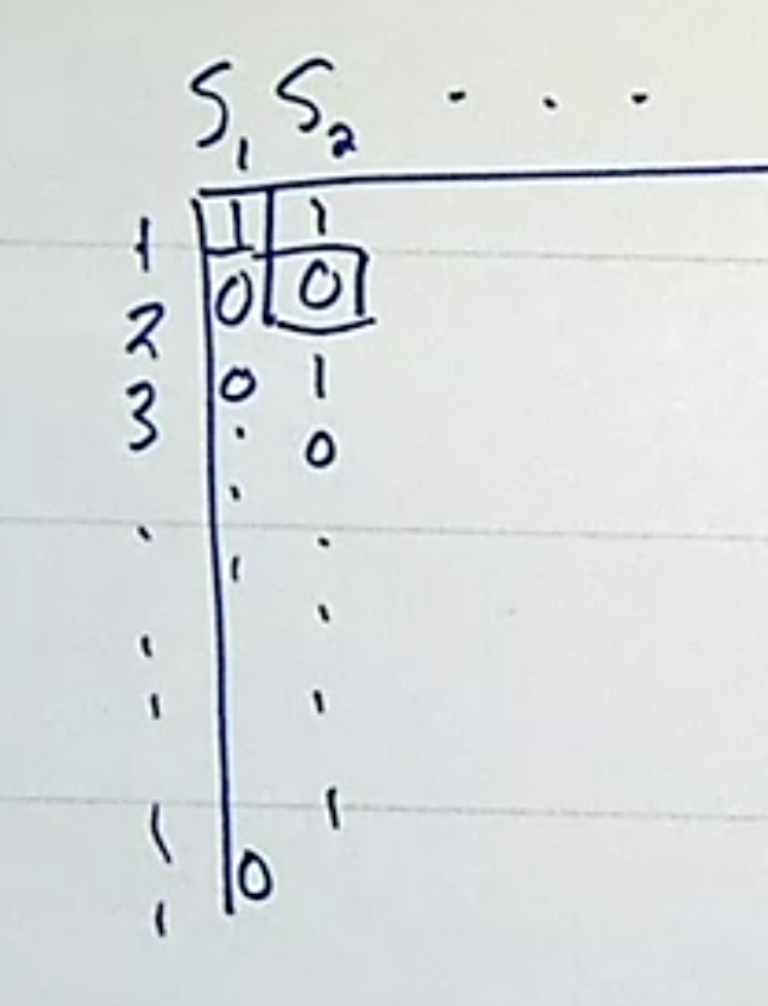 S₁ S₂ . . .
1 1 1
2 0 0
3 0 1
. 0
.
.
.
.
.
0